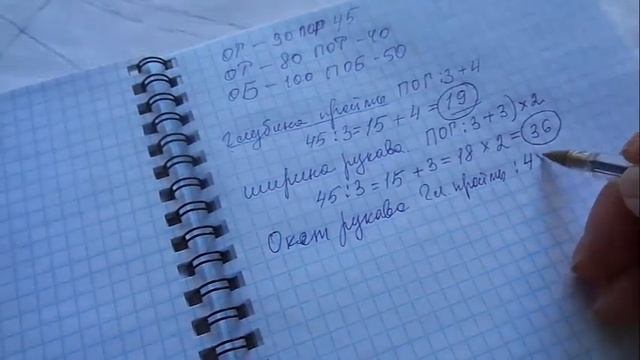 ОГ - 90 ПОГ 45
ОТ - 80 ПОТ - 40
ОБ - 100 ПОБ - 50
Глубина проймы ПОГ:3+4
45:3=15+4=19
ширина рукава. ПОГ:3+3)×2
45:3=15+3=18×2=36
Окат рукава Гл проймы :4